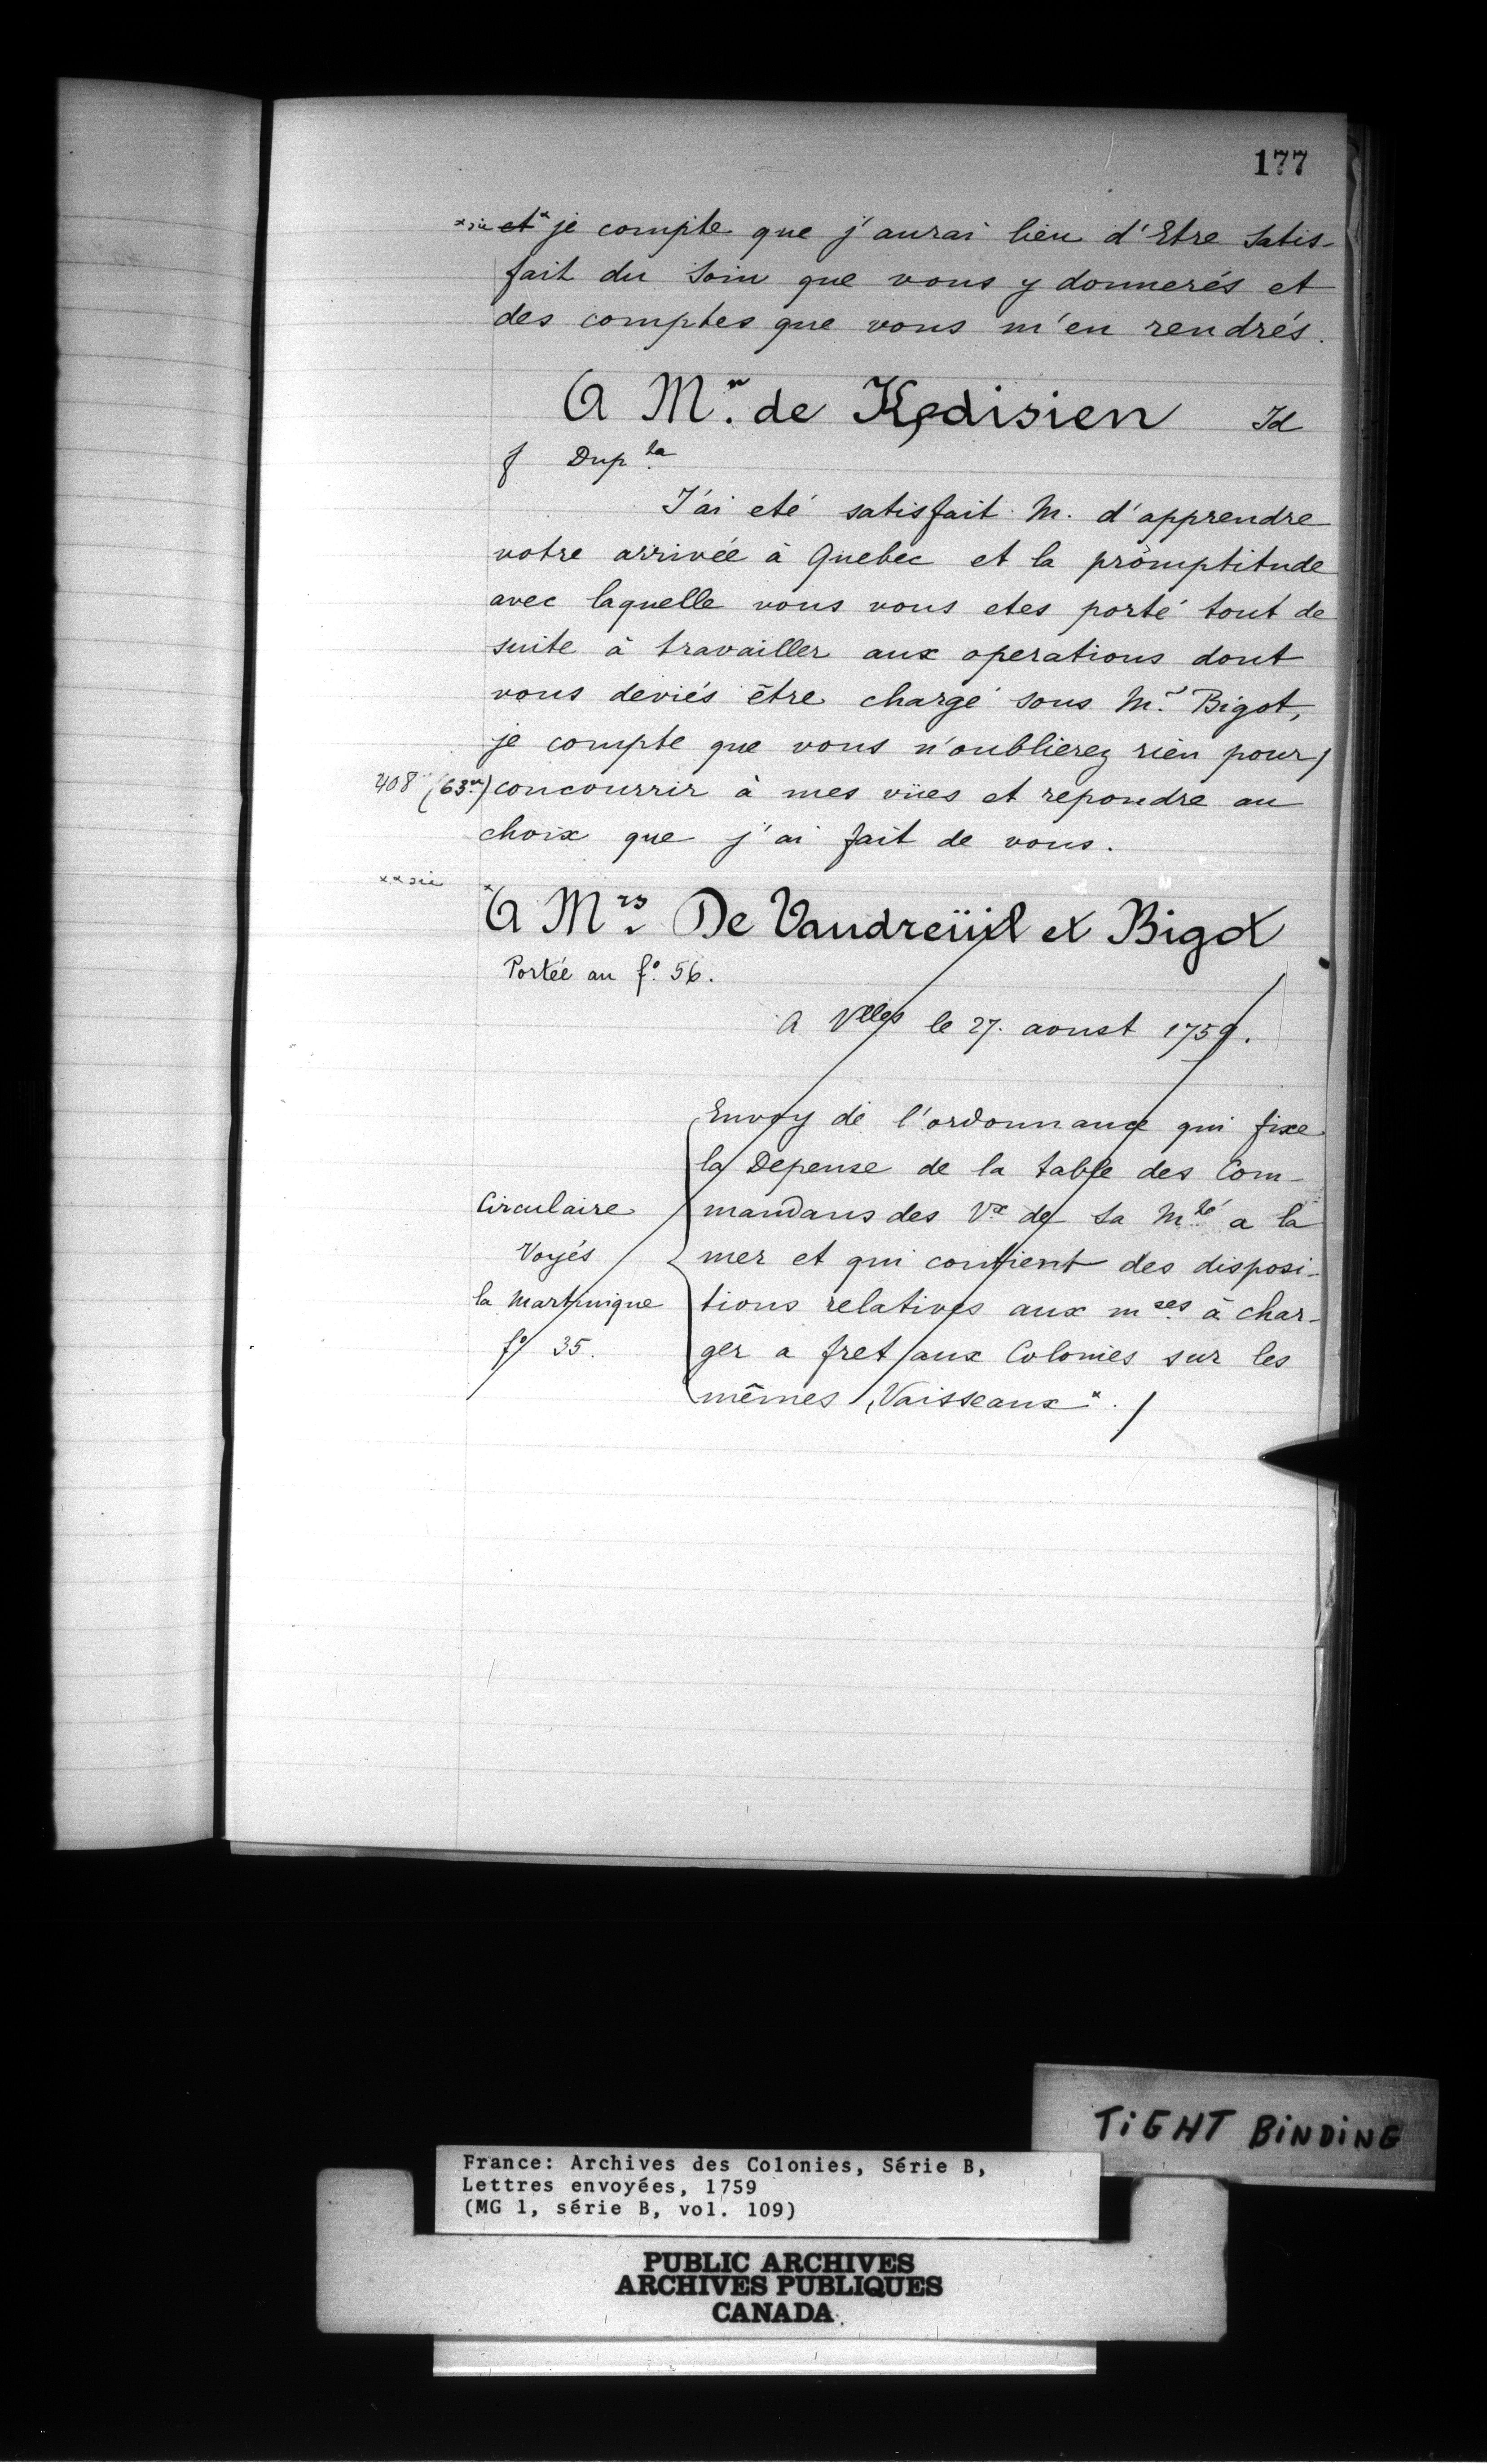 177
*sic et* je compte que j'aurai lieu d'Etre satis-
fait du soin que vous y donnerés et
des comptes que vous m'en rendrés.
A Mr. de Kedisien Id
f Dup ta
J'ai eté satisfait M. d'apprendre
votre arrivée à Quebec et la promptitude
avec laquelle vous vous etes porté tout de
suite à travailler aux operations dont
vous deviés être chargé sous Mr. Bigot,
je compte que vous n'oublierez rien pour/
408 (63 vo) concourrir à mes vües et repondre au
choix que j'ai fait de vous.
xx sic
*A Mrs. De Vaudreüil et Bigot
Portée au fo. 56.
A Vlles le 27. aoust 1759.
Circulaire
Voyés
la Martinique
fo 35.
Envoy de l'ordonnance qui fixe
la Depense de la table des Com-
mandans des Vx de sa Mté a la
mer et qui contient des disposi-
tions relatives aux mses à char-
ger a fret aux Colonies sur les
mêmes Vaisseaux*. /
TIGHT BINDING
France: Archives des Colonies, Série B,
Lettres envoyées, 1759
(MG 1, série B, vol. 109)
PUBLIC ARCHIVES
ARCHIVES PUBLIQUES
CANADA